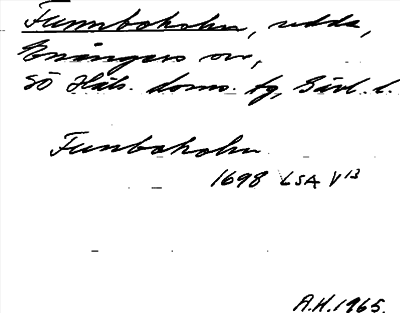 Funnboholm, udde,
Enångers sn,
SÖ Häls. doms. tg, Gävl. l.
Funboholm
1698 LSA V 13
A.H. 1965.